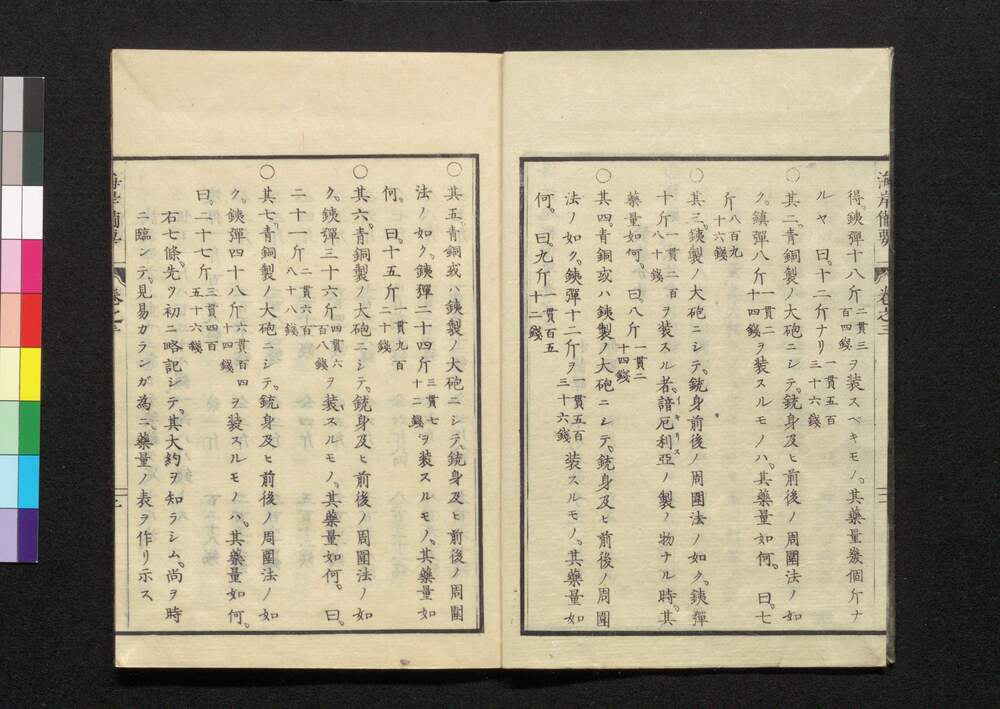 得。銕彈十八斤二貫三百四錢ヲ装スベキモノ。其藥量幾個斤ナ
ルヤ 曰。十二斤ナリ一貫五百三十六錢
○其二。青銅製ノ大砲ニシテ。銃身及ヒ前後ノ周圍法ノ如
ク。鎮彈八斤一貫二十四錢ヲ装スルモノハ。其藥量如何。 曰。七
斤八百九十六錢
○其三。銕製ノ大砲ニシテ。銃身前後ノ周圍法ノ如ク。銕彈
十斤一貫二百八十錢ヲ装スル者。諳厄利亞ノ製ノ物ナル時。其
藥量如何。曰八斤一貫二十四錢
○其四。青銅或ハ銕製ノ大砲ニシテ。銃身及ヒ前後ノ周圍
法ノ如ク。銕彈十二斤ヲ一貫五百三十六錢装スルモノ。其藥量如
何。曰。九斤一貫百五十二錢
海岸備要 卷之三
○其五。青銅或ハ銕製ノ大砲ニシテ。銃身及ヒ前後ノ周圍
法ノ如ク。銕彈二十四斤三貫七十二錢ヲ装スルモノ。其藥量如
何。 曰。十五斤一貫九百二十錢
○其六。青銅製ノ大砲ニシテ。銃身及ヒ前後ノ周圍法ノ如
ク。銕彈三十六斤四貫六百八錢ヲ装スルモノ。其藥量如何。 曰。
二十一斤二貫六百八十八錢
○其七。青銅製ノ大砲ニシテ。銃身及ヒ前後ノ周圍法ノ如
ク。銕彈四十八斤六貫百四十四錢ヲ装スルモノハ。其藥量如何。
曰。二十七斤三貫四百五十六錢
右七條。先ツ初ニ略記シテ。其大約ヲ知ラシム。尚ヲ時
ニ臨ンテ。見易カランガ為ニ。藥量ノ表ヲ作リ示ス
海岸備要 卷之三